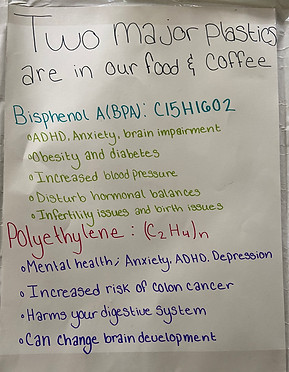 Two major plastics
are in our food & coffee
Bisphenol A(BPA): C15H16O2
ADHD, Anxiety, brain impairment
Obesity and diabetes
Increased blood pressure
Disturb hormonal balances
Infertility issues and birth issues
Polyethylene: (C₂H₄)n
Mental health; Anxiety, ADHD, Depression
Increased risk of colon cancer
Harms your digestive system
Can change brain development